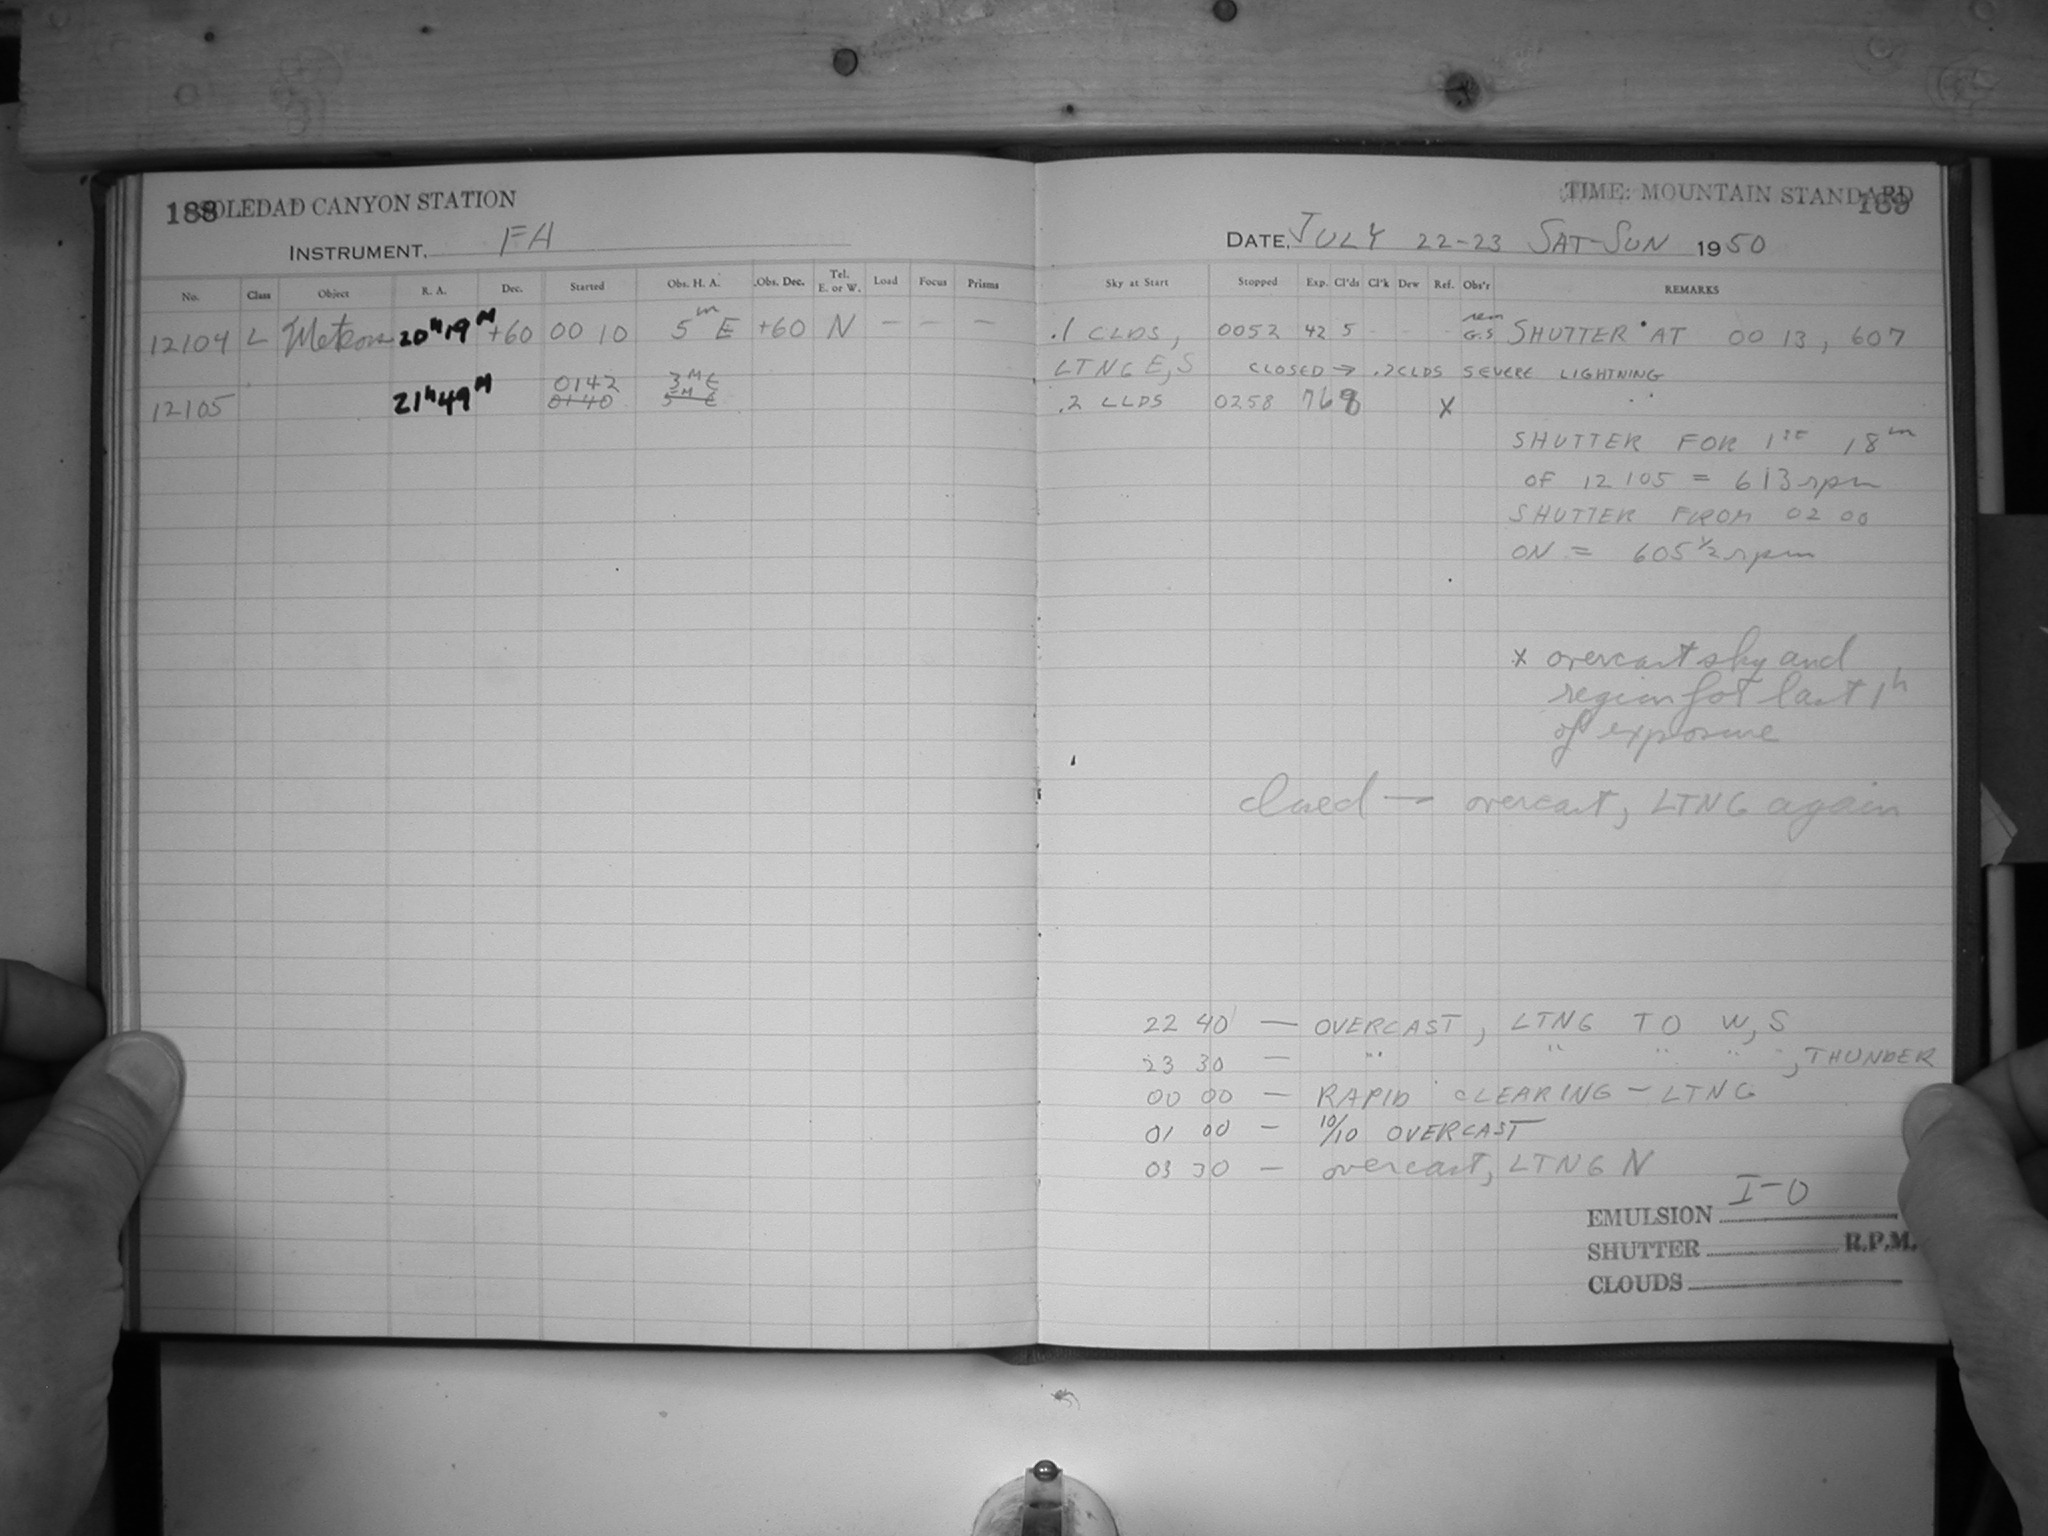 188 SOLEDAD CANYON STATION
INSTRUMENT, FA
No. Class Object R. A. Dec. Started Obs. H. A. Obs. Dec. Tel. E. or W. Load Focus Prisms
12104 L Meteors 20h19M +60 00 10 5m E +60 N – – –
12105 21h49M 0142 3M E
0140 5M E
TIME: MOUNTAIN STANDARD
189
DATE, JULY 22-23 SAT-SUN 1950
Sky at Start Stopped Exp. Cl'ds Cl'k Dew Ref. Obs'r REMARKS
.1 CLDS, 0052 42 5 - - - G.S SHUTTER AT 00 13, 607
LTNG E, S CLOSED → .2CLDS SEVERE LIGHTNING
.2 CLDS 0258 76 8 X
SHUTTER FOR 1ST 18m
OF 12105 = 613 rpm
SHUTTER FROM 02 00
ON = 605 1/2 rpm
x overcast sky and
region for last 1h
of exposure
closed — overcast, LTNG again
22 40 — OVERCAST, LTNG TO W, S
23 30 — " " " " ", THUNDER
00 00 — RAPID CLEARING – LTNG
01 00 – 10/10 OVERCAST
03 30 – overcast, LTNG N
EMULSION I-O
SHUTTER R.P.M.
CLOUDS